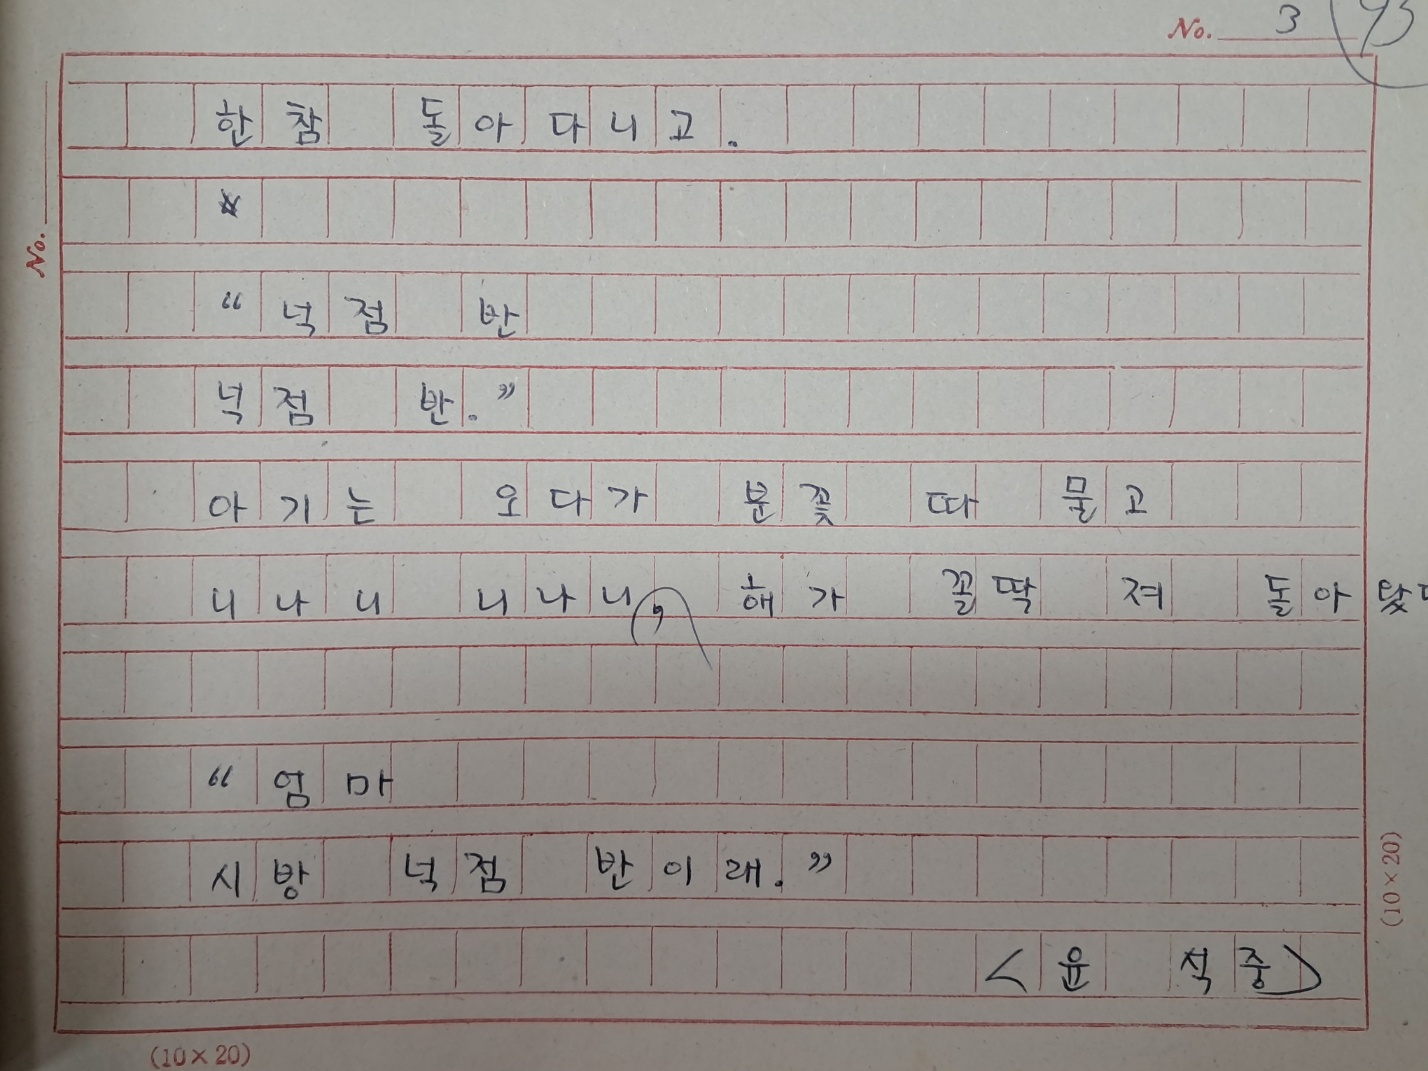 No. 3 93
한참 돌아다니고.
*
No.
“넉점 반
넉점 반.”
아기는 오다가 분꽃 따 물고
니나니 니나니, 해가 꼴딱 져 돌아왔다
“엄마
시방 넉점 반이래.”
(10×20)
<윤 석중>
(10×20)